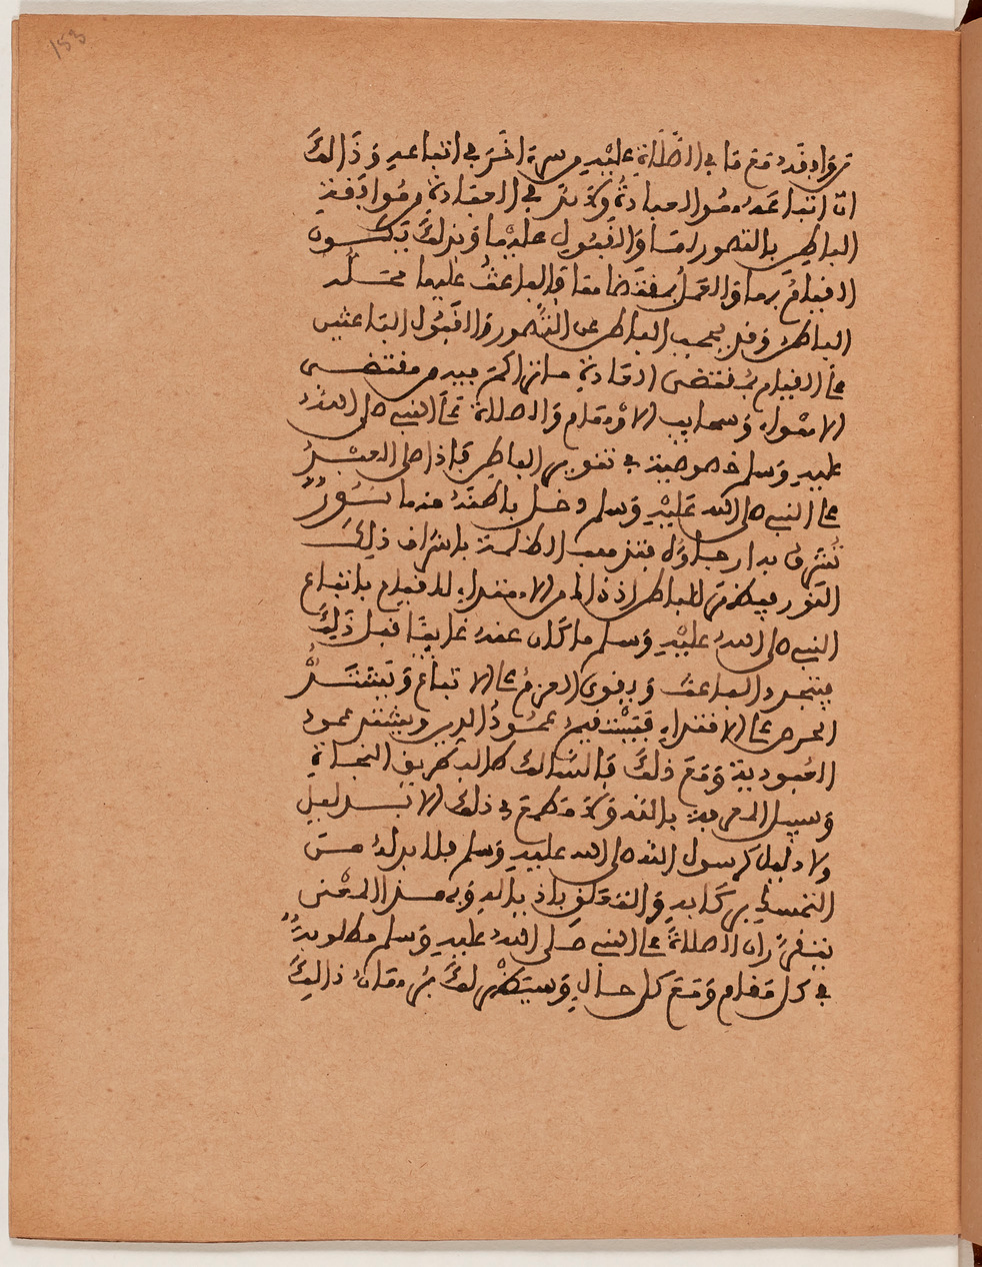 153
مع ما في الصلاة عليه من سر اخر في اتباعه وذالك
ان اتباعه هو العبادة ولابد في العبادة من موافقة
الباطن بالتصور لها والقبول عليها وبذلك يكون
القيام بها والعمل بمقتضاها فالباعث عليها محله
الباطن وقد يحجب الباطن عن التصور والقبول الباعثين
على القيام بمقتضى العبادة ما تراكم فيه من مقتضى
وسحايب الاوهام والصلاة على النبي صلى الله
عليه وسلم خصوصية في تنوير الباطن فاذا صلى العبد
على النبي صلى الله عليه وسلم دخل باطنه عندها نور
فتذهب الظلمة باشراف ذلك
النور فيظهر للباطن اذ ذاك من الاهتداء للقيام باتباع
النبي صلى الله عليه وسلم ما كان عنه غايبا قبل ذلك
فيتجرد الباعث ويقوى العزم على الاتباع ويشتد
الحرص على الاقتداء فيثبت فيه عمود الدين ويشتد عمود
العبودية ومع ذلك فالسالك طالب طريق النجاة
وسبيل المعرفة بالله ولا مطمع في ذلك الا بدليل
ولا دليل كرسول الله صلى الله عليه وسلم فلا بد لك من
التمسك بركابه والتعلق باذياله وبهذا المعنى
ان الصلاة على النبي صلى الله عليه وسلم مطلوبة
في كل مقام ومع كل حال وسيظهر لك برهان ذالك